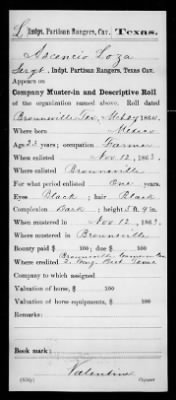 L, Indpt. Partisan Rangers, Cav., Texas.
Ascencio Loza
Sergt., Indpt. Partisan Rangers, Texas Cav.
Appears on
Company Muster-in and Descriptive Roll
of the organization named above. Roll dated
Brownsville Tex, 1864.
Where born Mexico
Age 23 years; occupation Farmer
When enlisted Nov. 12, 1863.
Where enlisted Brownsville
For what period enlisted One years.
Eyes Black; hair Black
Complexion Dark; height 5 ft. 9 in.
When mustered in Nov 12, 1863.
Where mustered in Brownsville
Bounty paid $ 100; due $ 100
Brownsville
Where credited
Company to which assigned
Valuation of horse, $ 100
Valuation of horse equipments, $ 100
Remarks:
Book mark:
Valentine
Copyist